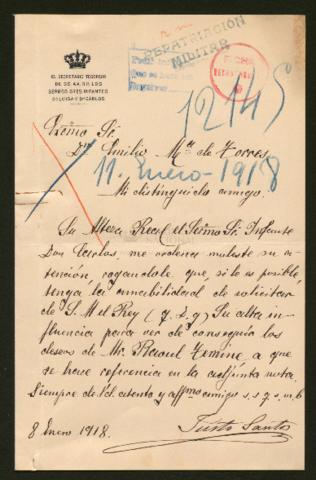 EL SECRETARIO TESORERO
DE SS. AA. RR. LOS
SERMOS. SRES. INFANTES
Dª LUISA Y Dn CARLOS
REPATRIACIÓN
MILITAR
FICHE
12145
Excmo Sr.
Dn Emilio Mª de Torres
11-Enero-1918
Mi distinguido amigo.
Su Alteza Real el Sermo Sr. Infante
Don Carlos, me ordena moleste su a-
tención, rogandole que, si le es posible,
tenga la amabilidad de solicitar
de S. M. el Rey (q. D. g.) Su alta in-
fluencia para ver de conseguir los
deseos de Mr. Raoul Temine, a que
se hace referencia en la adjunta nota.
Siempre de Vd. atento y affmo amigo s. s. q. s. m. b.
8 Enero 1918.
Justo Santos